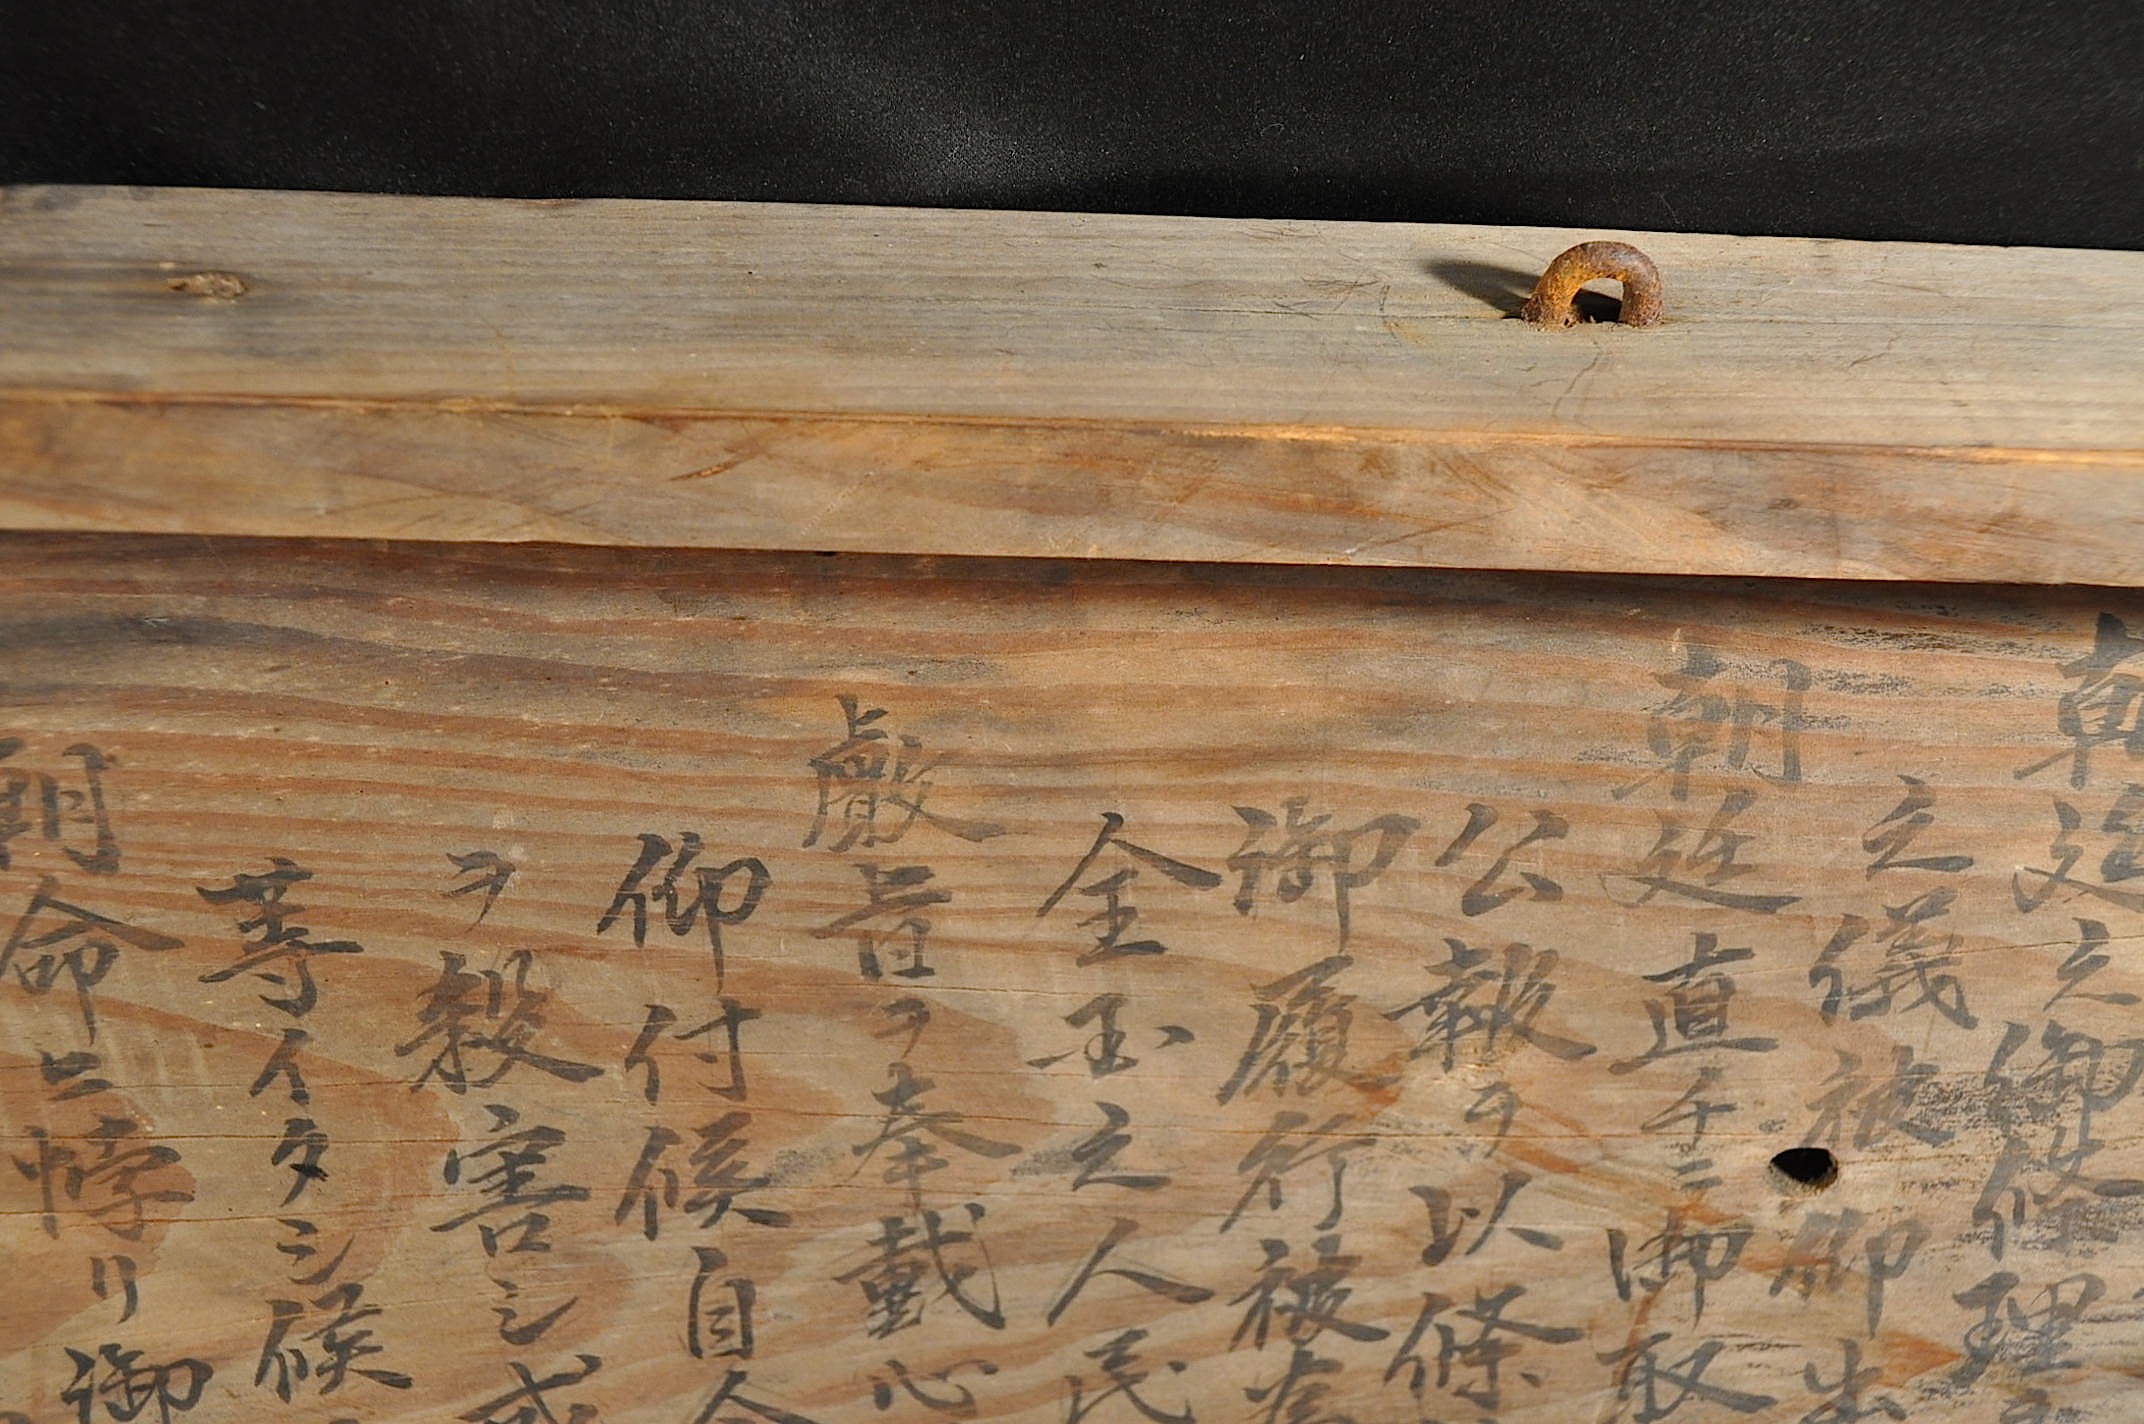 朝廷之御條理
之儀被仰出
朝廷直チニ御取
公報ヲ以條
御履行被為
全玉之人民
叡旨ヲ奉戴心
仰付候自今
ヲ殺害シ或
等イタシ候
朝命ニ悖リ御